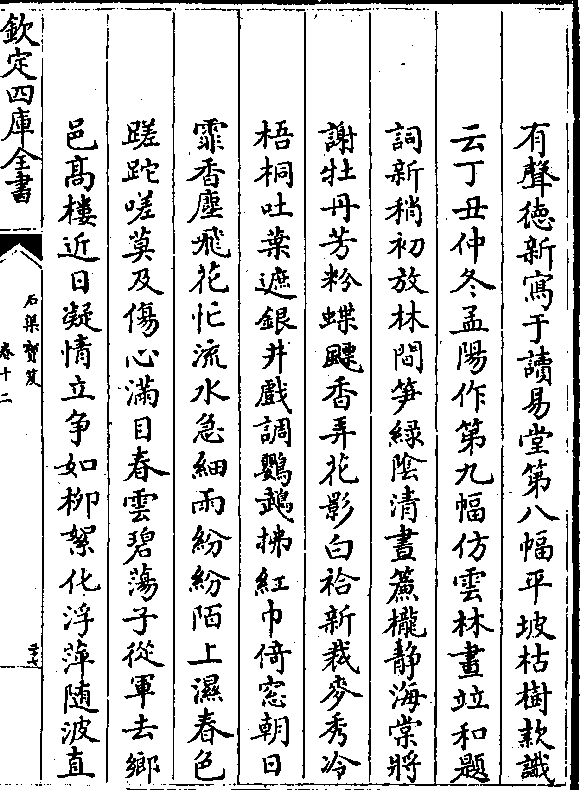 有聲徳新寫于讀易堂第八幅平坡枯樹款識
云丁丑仲冬孟陽作第九幅仿雲林畫並和題
詞新稍初放林間笋綠陰清晝簾櫳静海棠將
謝牡丹芳粉蝶飃香弄花影白袷新裁麥秀冷
梧桐吐葉遮銀井戲調鸚鵡拂紅巾倚窓朝日
霏香塵飛花忙流水急細雨紛紛陌上濕春色
蹉跎嗟莫及傷心滿目春雲碧蕩子從軍去鄉
邑髙樓近日凝情立争如柳絮化浮萍随波直
欽定四庫全書
石渠寳笈
卷十二
三十七